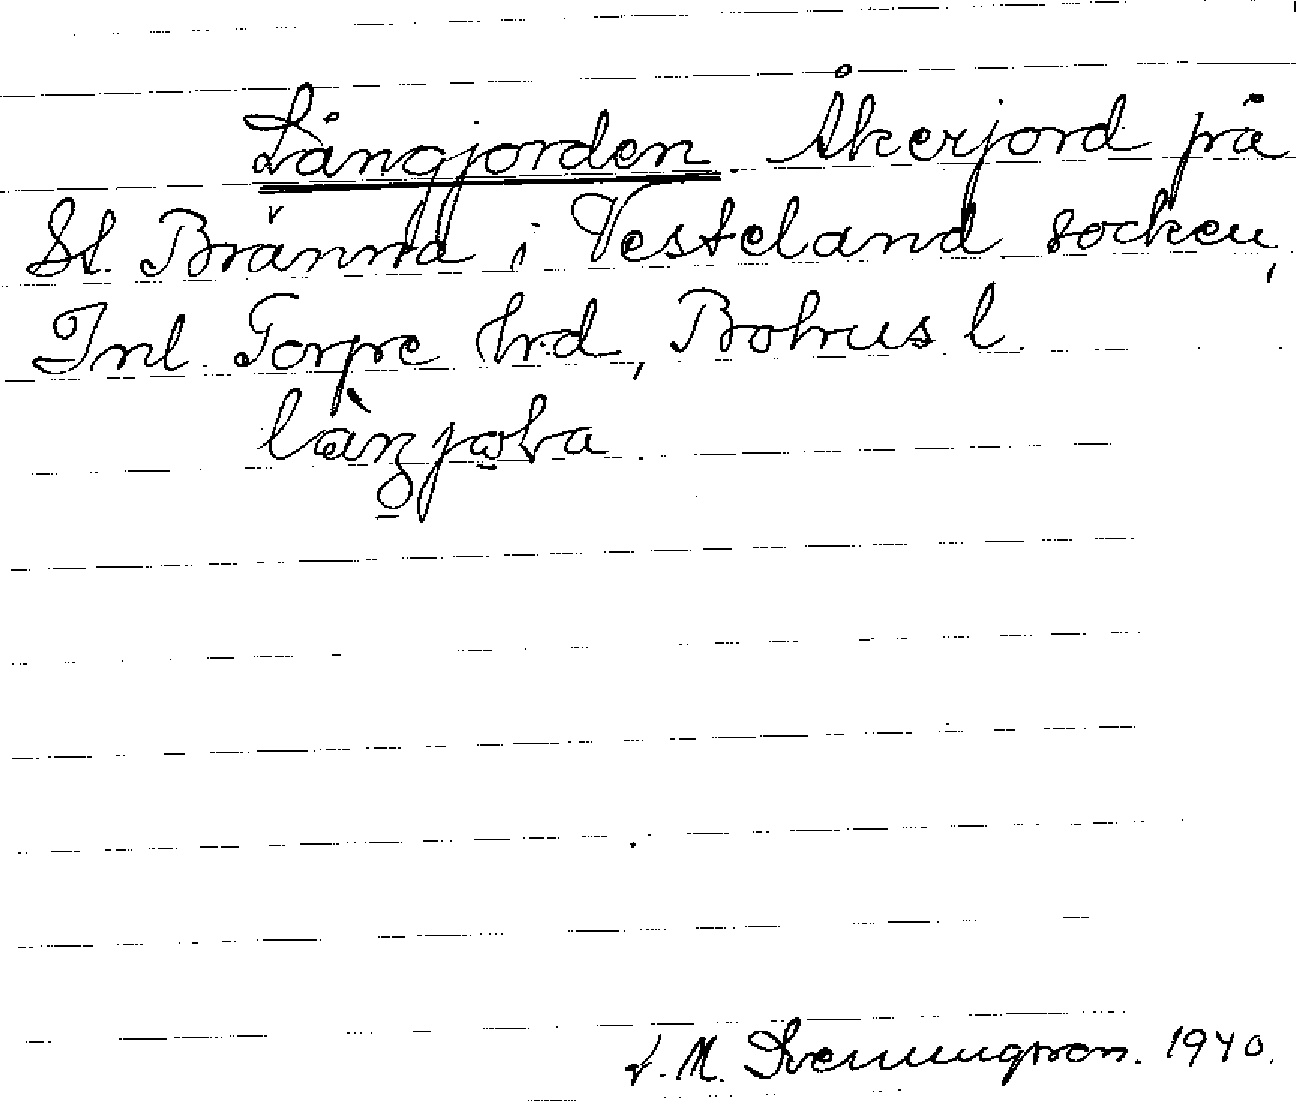 Långjorden. Åkerjord på
St. Brännd i Vesteland socken,
Inl. Torpe hrd, Bohus l.
S. M. Svenungsson. 1940.